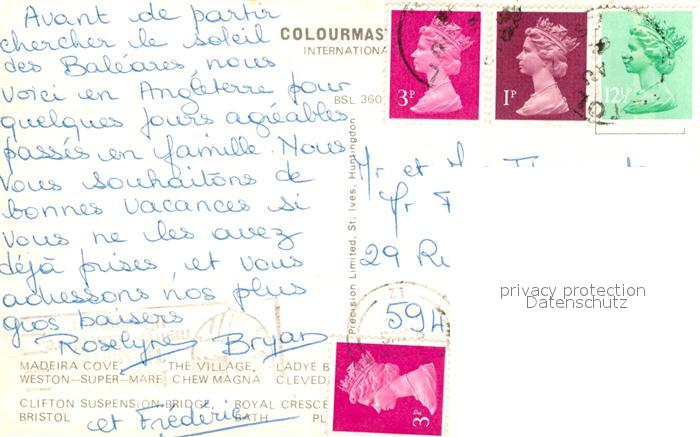 Avant de partir
chercher le soleil
des Baléares, nous
voici en Angleterre pour
quelques jours agréables
passés en famille. Nous
vous souhaitons de
bonnes vacances si
vous ne les avez
déjà prises et vous
adressons nos plus
gros baisers
Roselyne Bryan
et Frédéric
COLOURMAS
INTERNATIONA
BSL 360
Precision Limited, St. Ives, Huntingdon
3P
1P
12½P
Mr et
29 Ru
594
3P
privacy protection
Datenschutz
MADEIRA COVE THE VILLAGE, LADYE B
WESTON-SUPER-MARE CHEW MAGNA CLEVED
CLIFTON SUSPENSION BRIDGE, ROYAL CRESCE
BRISTOL BATH